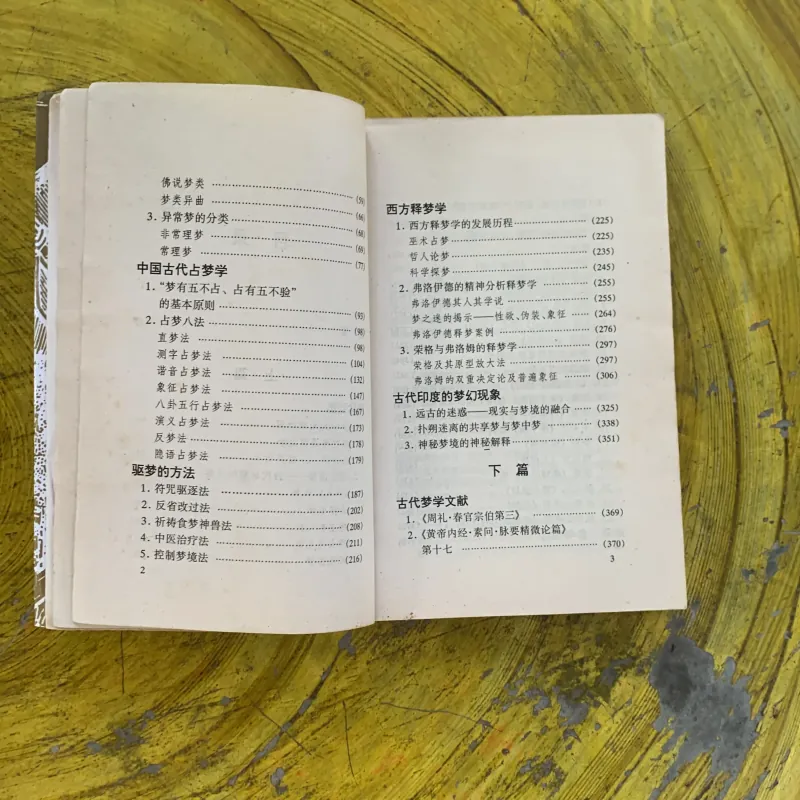 佛说梦类 (59)
梦类异曲 (66)
3. 异常梦的分类 (68)
非常理梦 (69)
常理梦 (77)
中国古代占梦学
1. “梦有五不占、占有五不验”
的基本原则 (93)
2. 占梦八法 (98)
直梦法 (98)
测字占梦法 (104)
谐音占梦法 (132)
象征占梦法 (147)
八卦五行占梦法 (167)
演义占梦法 (173)
反梦法 (178)
隐语占梦法 (179)
驱梦的方法
1. 符咒驱逐法 (187)
2. 反省改过法 (202)
3. 祈祷食梦神兽法 (208)
4. 中医治疗法 (211)
5. 控制梦境法 (216)
2
西方释梦学
1. 西方释梦学的发展历程 (225)
巫术占梦 (225)
哲人论梦 (235)
科学探梦 (245)
2. 弗洛伊德的精神分析释梦学 (255)
弗洛伊德其人其学说 (255)
梦之迷的揭示——性欲、伪装、象征 (264)
弗洛伊德释梦案例 (276)
3. 荣格与弗洛姆的释梦学 (297)
荣格及其原型放大法 (297)
弗洛姆的双重决定论及普遍象征 (306)
古代印度的梦幻现象
1. 远古的迷惑——现实与梦境的融合 (325)
2. 扑朔迷离的共享梦与梦中梦 (338)
3. 神秘梦境的神秘解释 (351)
下 篇
古代梦学文献
1. 《周礼·春官宗伯第三》 (369)
2. 《黄帝内经·素问·脉要精微论篇》
第十七 (370)
3